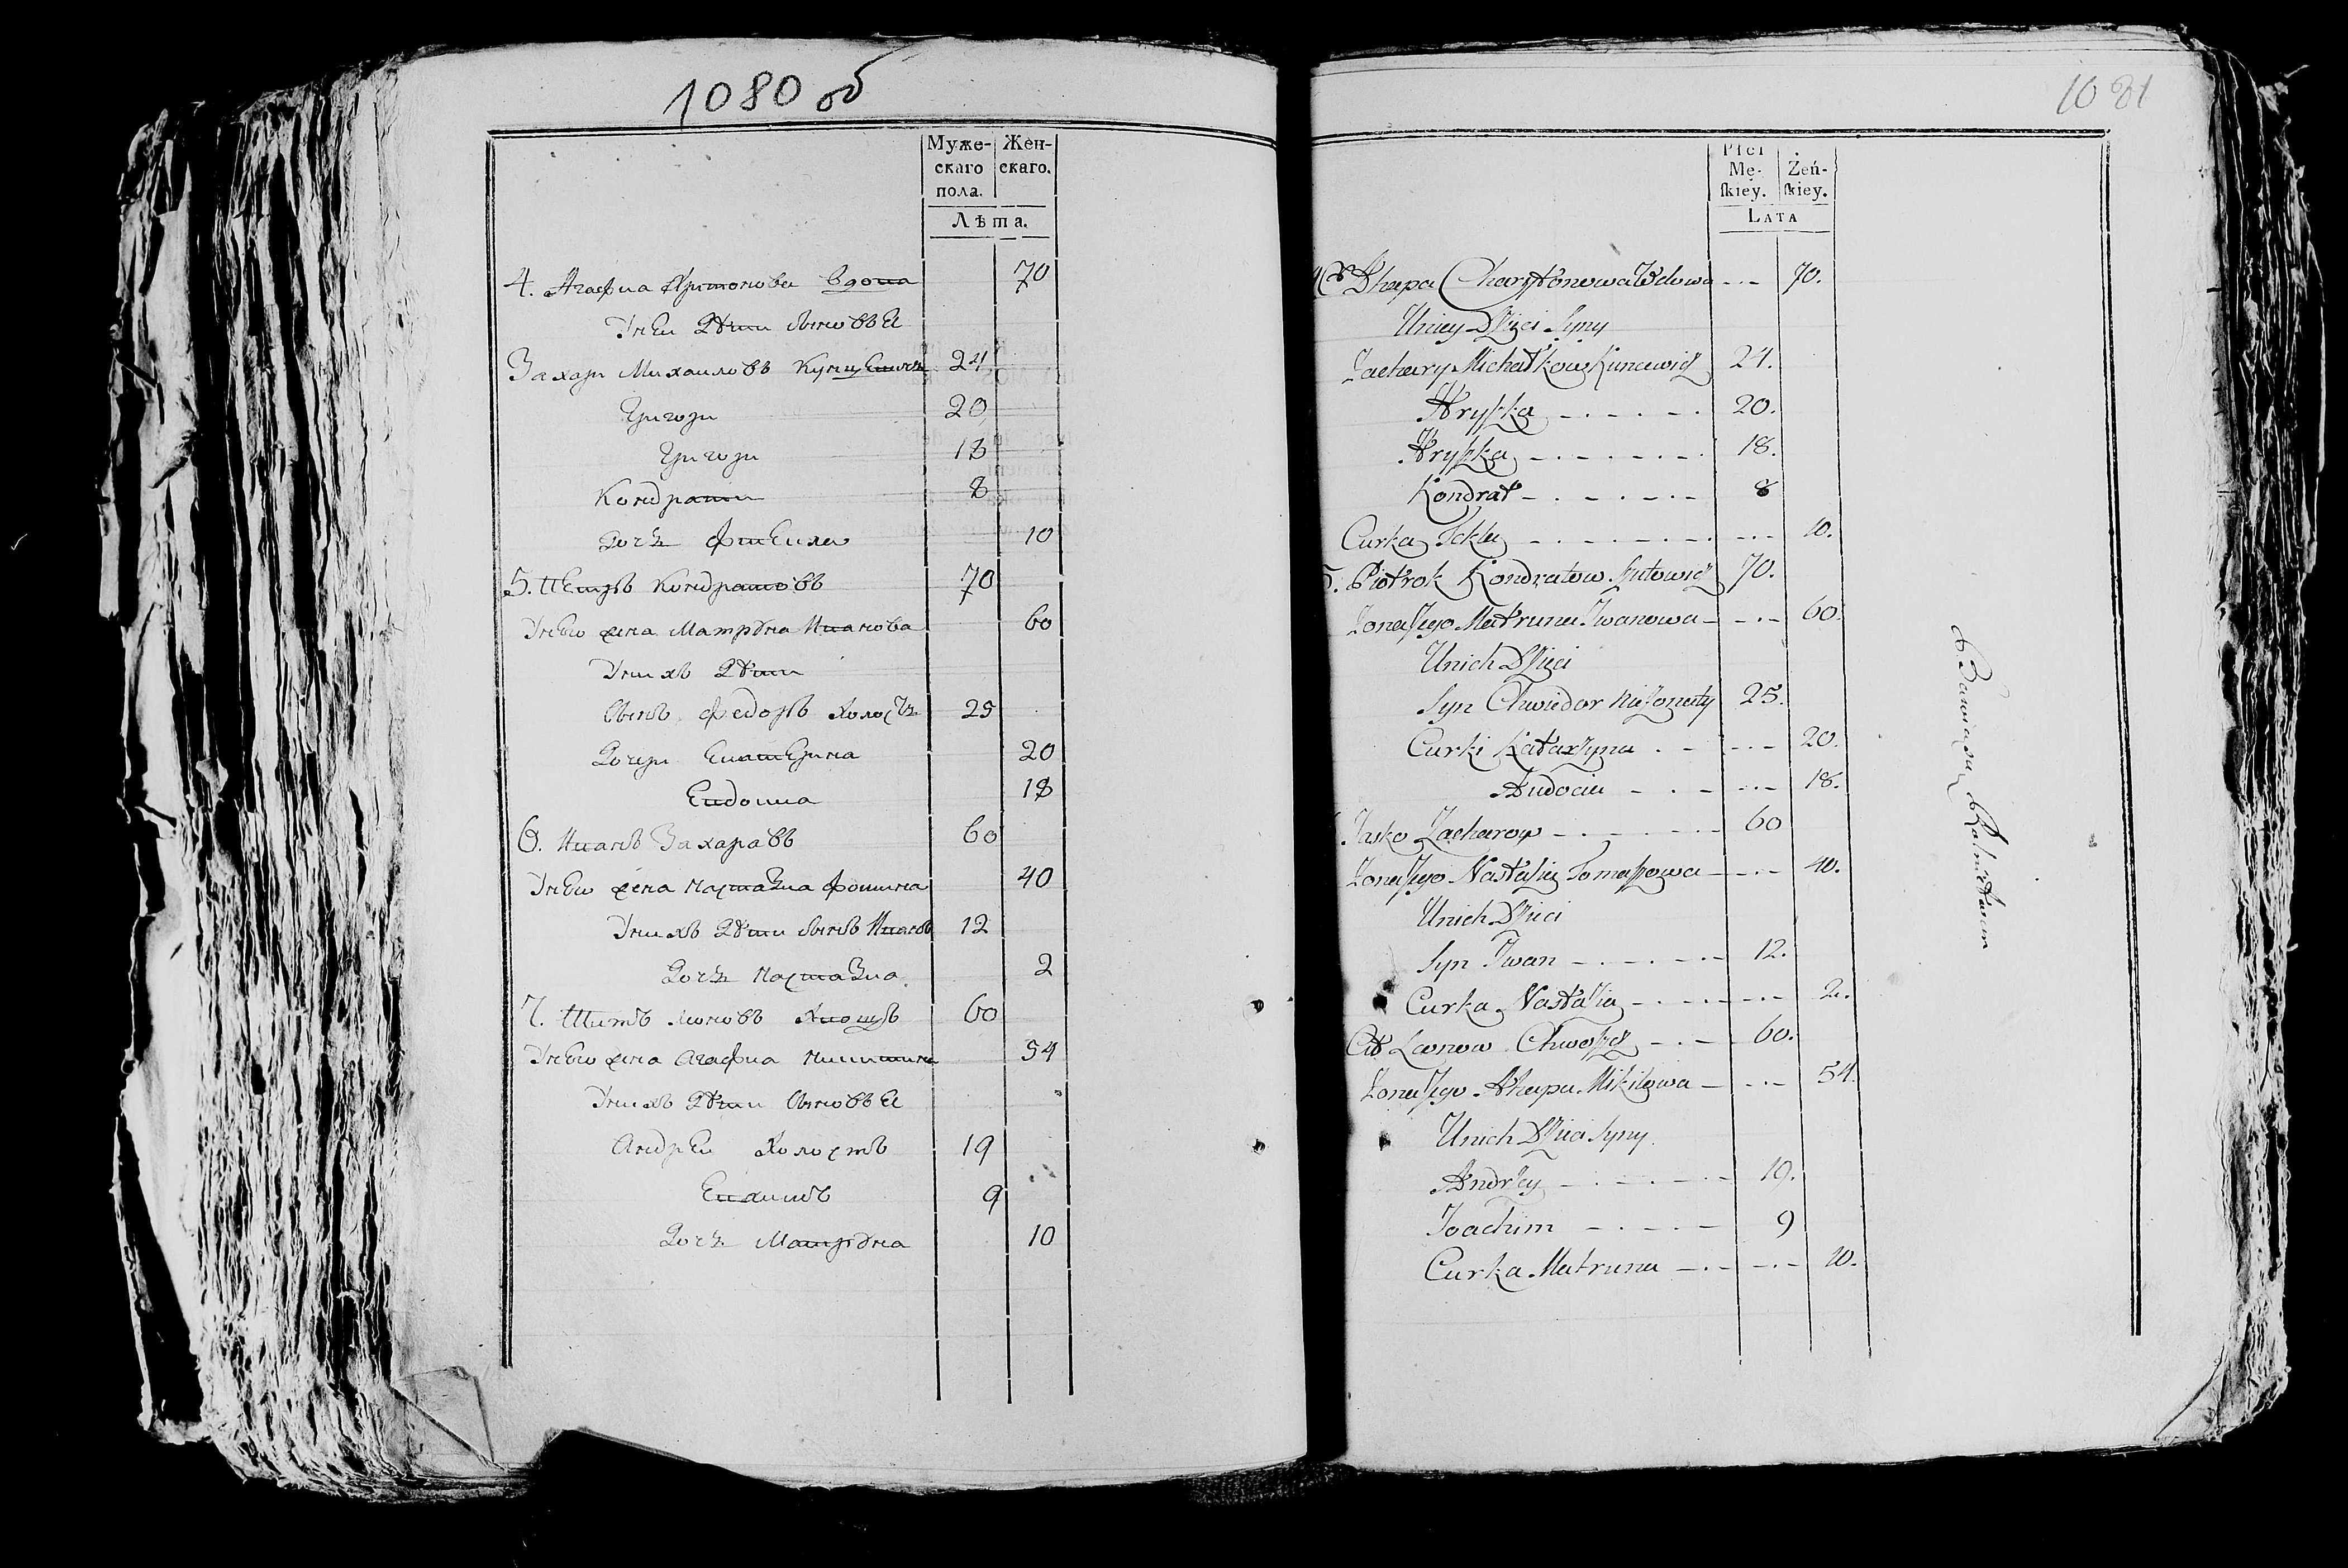 1080 об
Муже-
скаго
пола.
Жен-
скаго.
Лѣта.
4. Агафиа Харитонова вдова 70
Унеи дѣти сыновѣе
Захари Михаиловъ Кунцевичъ 24
Григори 20
Григори 18
Кондрати 8
дочь Фтекла 10
5. Петръ Кондратовъ 70
Унево жена Матруна Иванова 60
Унихъ дѣти
сынъ Федоръ холостъ 25
дочери Екатерина 20
Евдокиа 18
6. Иванъ Захаравъ 60
Унево жена Настазиа Фомина 40
Унихъ дѣти сынъ Иванъ 12
дочь Настазиа 2
7. Титъ Хвощъ 60
Унево жена Агафиа Никитина 54
Унихъ дѣти сыновѣе
Андреи холостъ 19
Екимъ 9
дочь Матруна 10
1081
Płci
Mę-
ſkiey.
Żeń-
ſkiey.
Lata
Ahapa Charytonowa Wdowa 70.
Uniey Dzieci Syny
Zachary Michałkow Kuncewicz 24.
Hryszka 20.
Hryszka 18.
Kondrat 8
Curka Tekla 10.
5. Piotrok Kondratow 70.
Zona Jego Matruna Iwanowa 60.
Unich Dzieci
Syn Chwiedor Nieżonaty 25.
Curki Katarzyna 20.
Audocia 18.
Jasko Zacharow 60
Zona Jego Nastazia Tomaszowa 40.
Unich Dzieci
Syn Iwan 12.
Curka Nastazia 2.
Cit Leonow Chwoszcz 60.
Zona Jego Ahapa Mikitowa 54.
Unich Dzieci Syny
Andrzey 19.
Joachim 9
Curka Matruna 10.